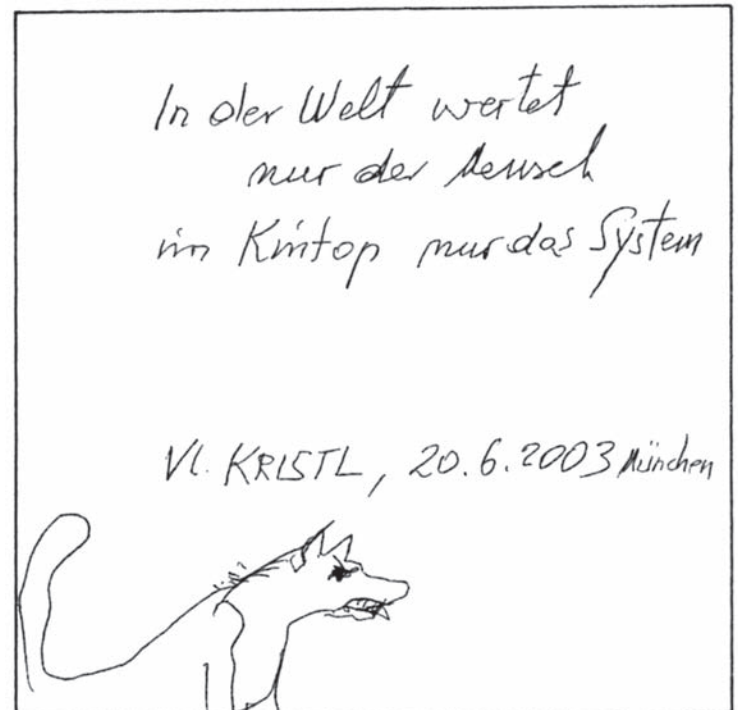 In der Welt wertet
nur der Mensch
im Kintop nur das System
Vl. KRISTL, 20.6.2003 München